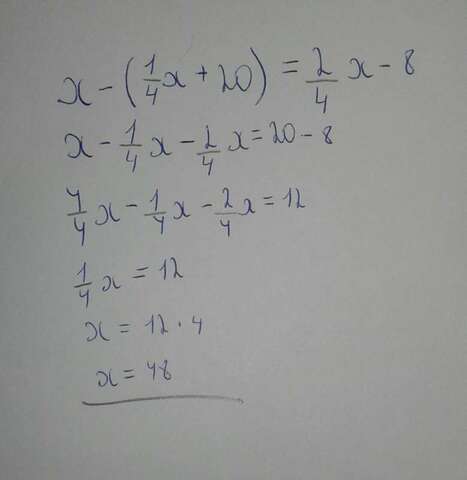 x - (1/4 x + 20) = 2/4 x - 8
x - 1/4 x - 2/4 x = 20 - 8
4/4 x - 1/4 x - 2/4 x = 12
1/4 x = 12
x = 12 · 4
x = 48